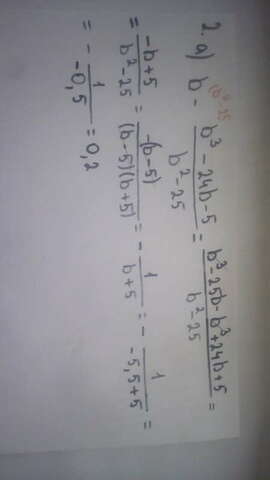 2. a) b - (b²-25 (b³ - 24b - 5)/(b² - 25) = (b³ - 25b - b³ + 24b + 5)/(b² - 25) =
= (-b + 5)/(b² - 25) = (-(b - 5))/((b - 5)(b + 5)) = - 1/(b + 5) = - 1/(-5,5 + 5) =
= - 1/(-0,5) = 0,2